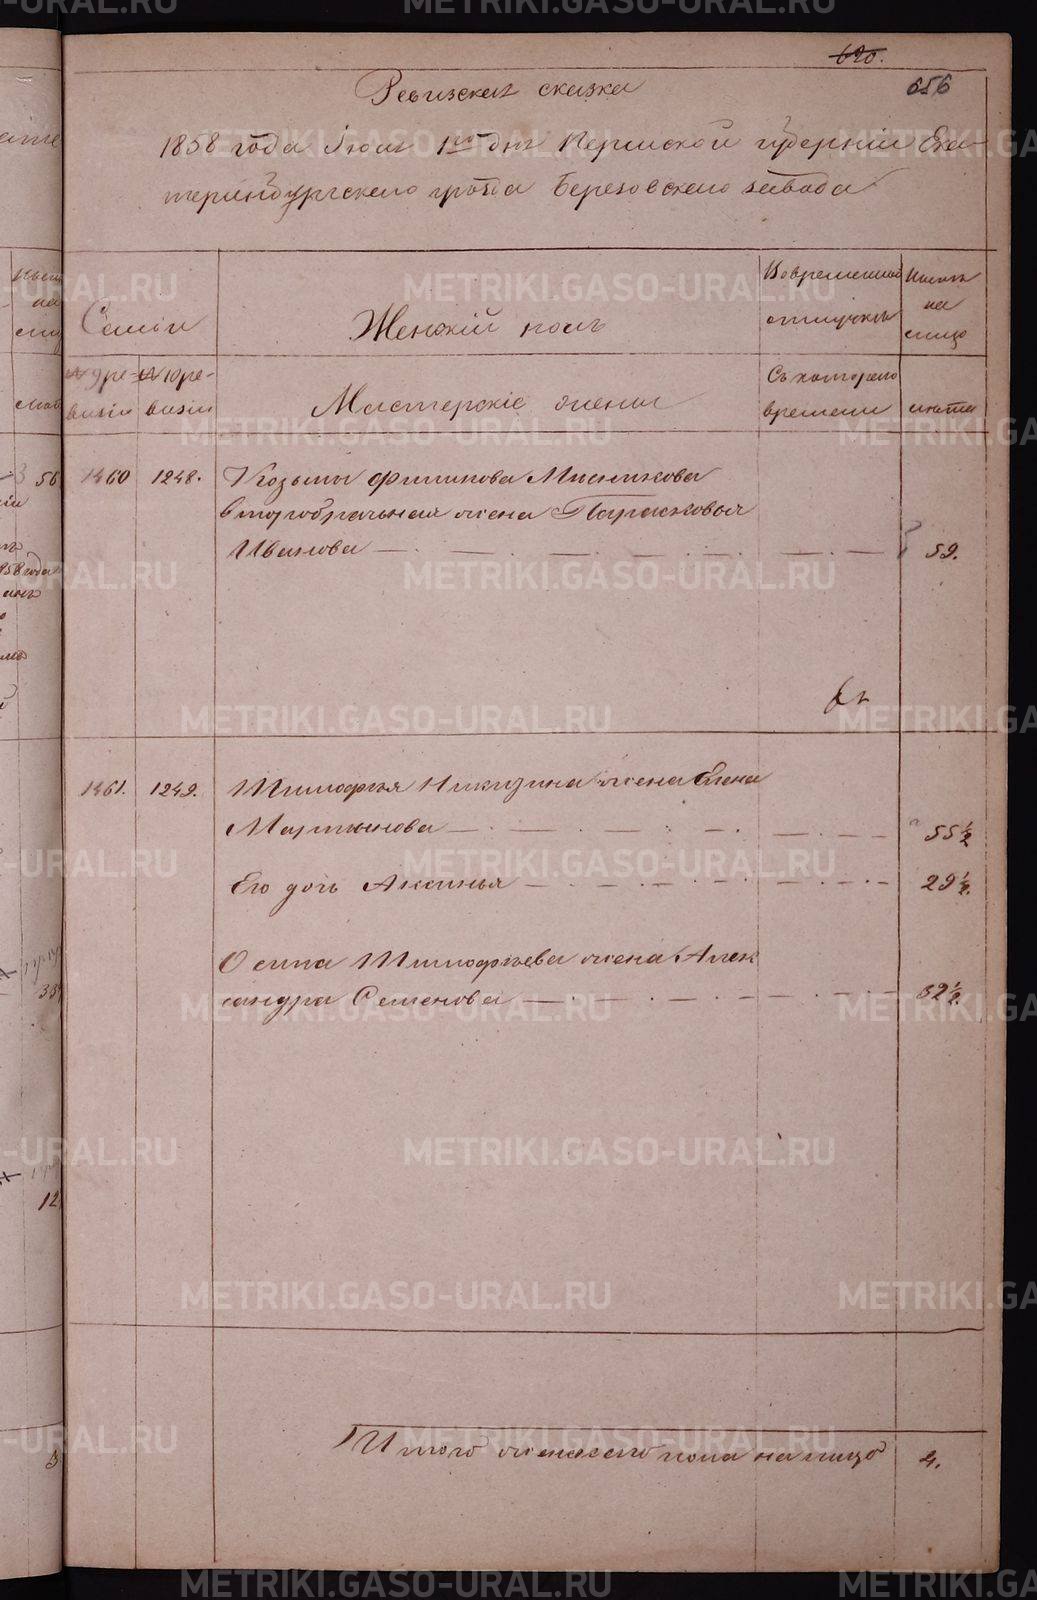 620.
656
Ревизская сказка
1858 года Июня 1го дня Пермской губерніи Ека-
теринбургскаго уѣзда Березовскаго завода
Семіи
Женскій полъ
Во временной
отлучкѣ
Нынѣ
на
лицо
№ 9 ре-
визіи
№ 10 ре-
визіи
Мастерскіе жены
Съ котораго
времени
лѣта
1460 1248. Козьмы Филипова Мыльникова
второбрачная жена Парасковья
Иванова — 59.
1461. 1249. Тимофѣя Никизина жена Елена
Мартынова — 55½
Его дочь Аксинья — 29½.
Осипа Тимофѣева жена Алек
сандра Семенова — 32½.
Итого женскаго пола на лицо 4.
56
858 года
12
3
METRIKI.GASO-URAL.RU